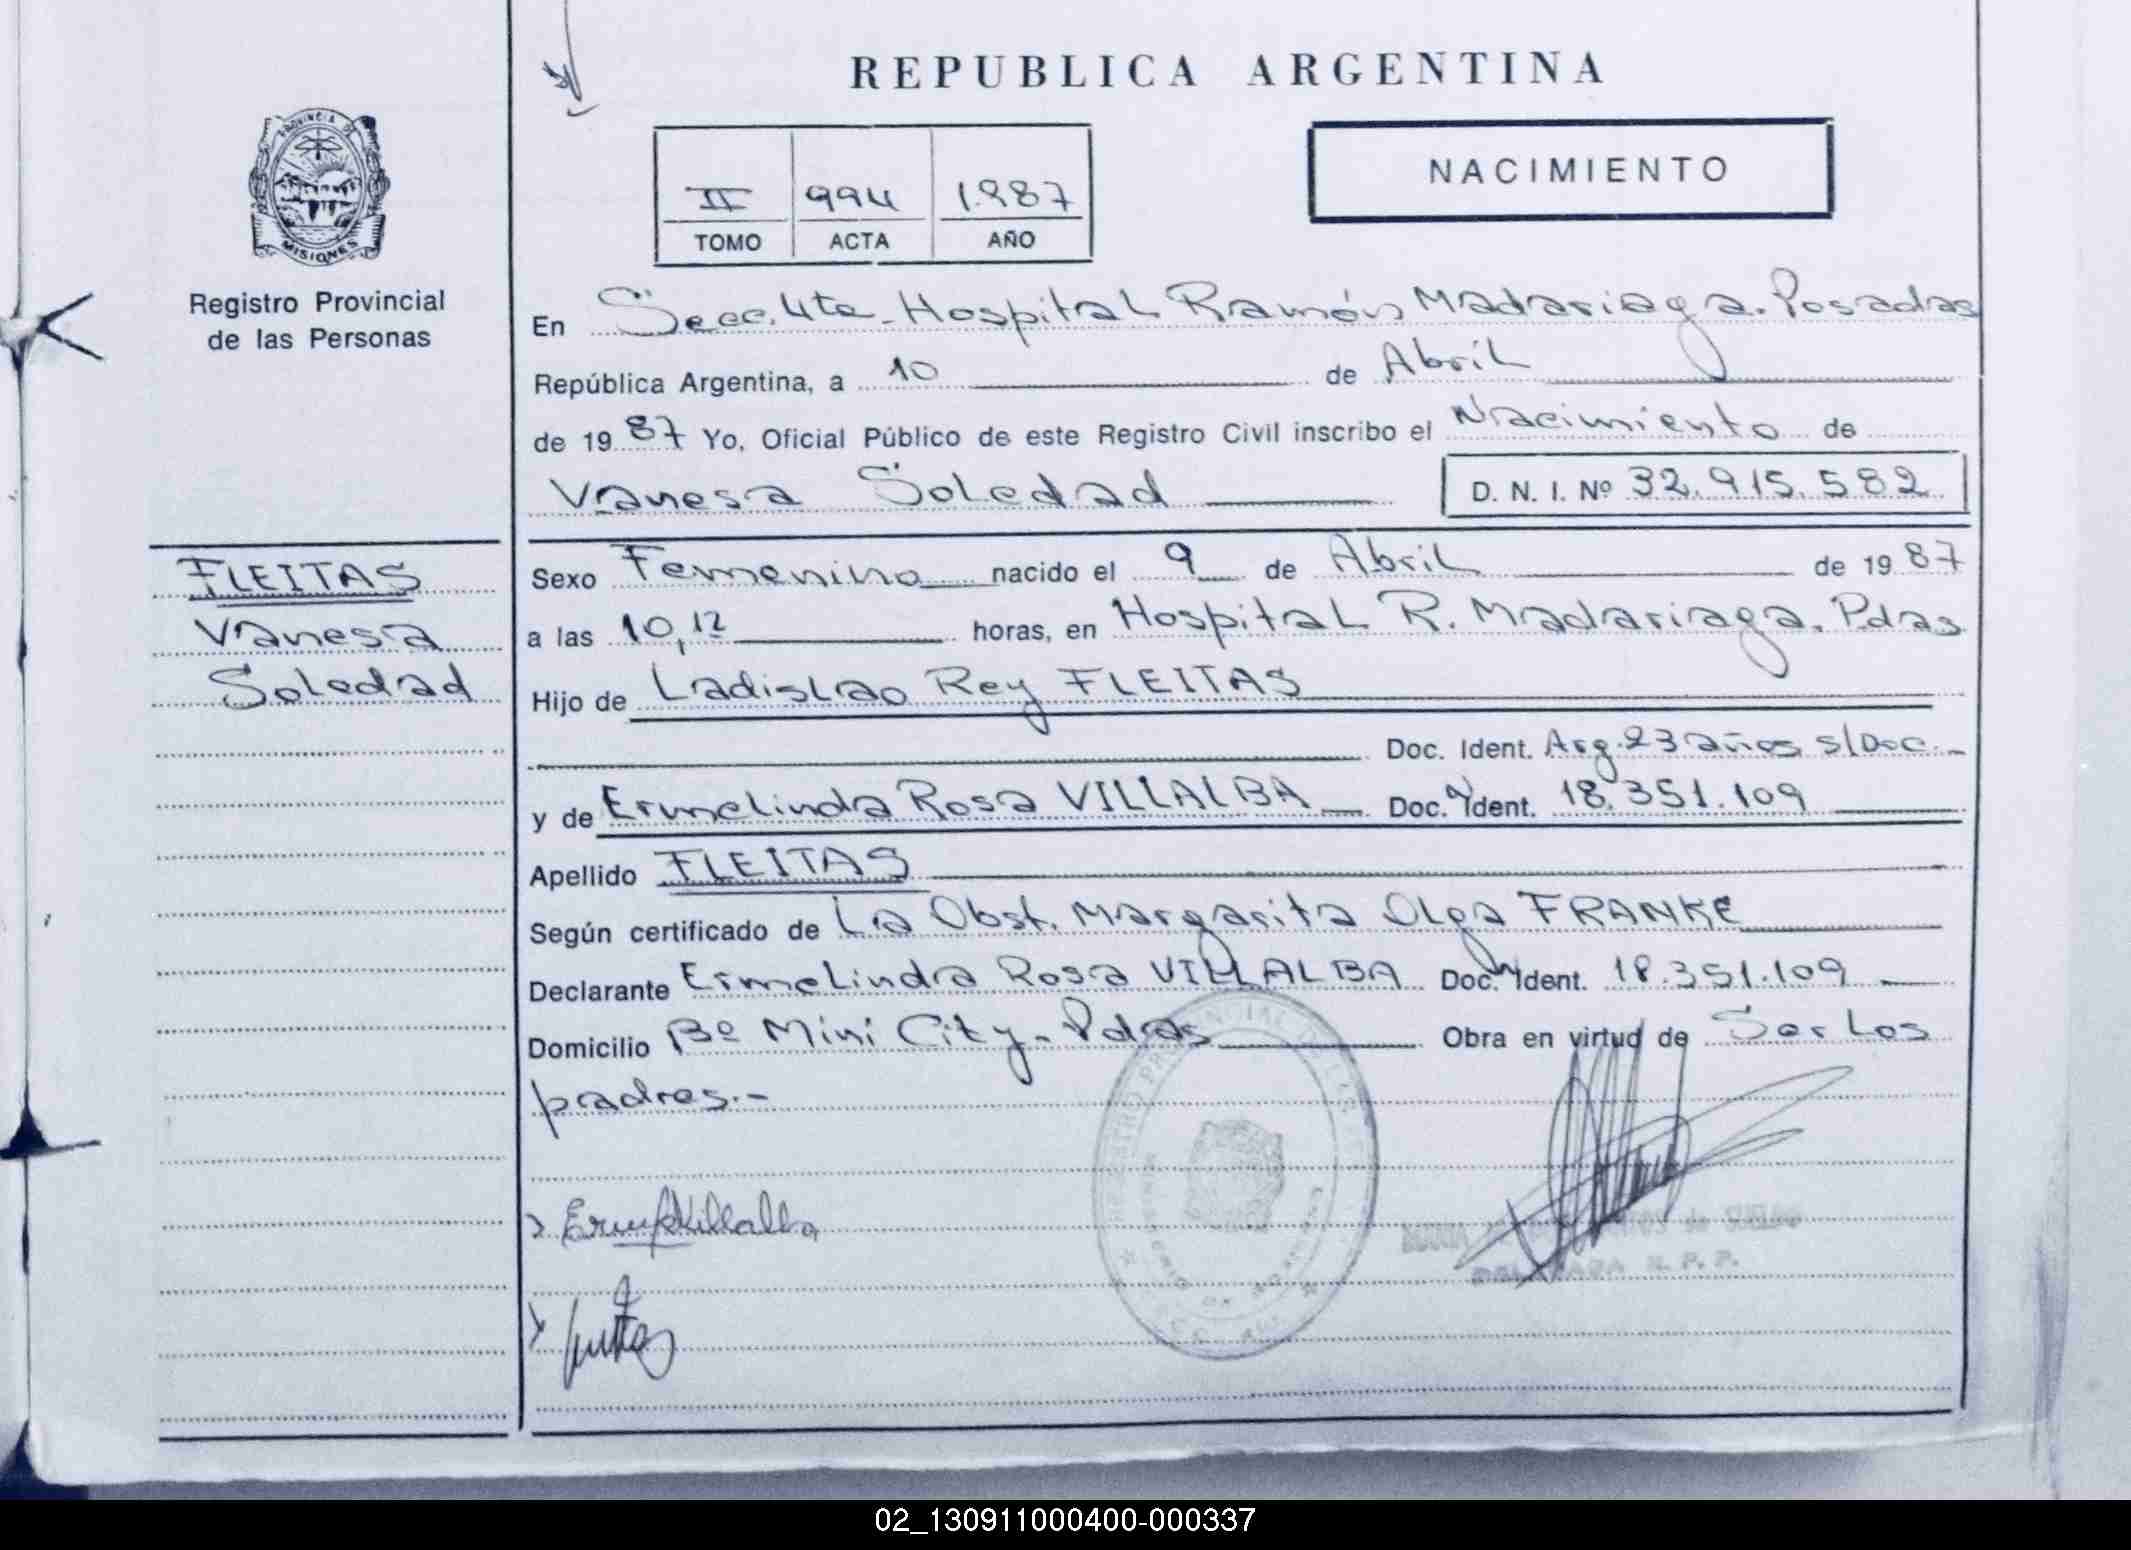 REPUBLICA ARGENTINA
NACIMIENTO
II 994 1987
TOMO ACTA AÑO
PROVINCIA DE
MISIONES
Registro Provincial
de las Personas
En Secc. 4ta - Hospital Ramón Madariaga. Posadas
República Argentina, a 10 de Abril
de 1987 Yo, Oficial Público de este Registro Civil inscribo el Nacimiento de
Vanesa Soledad D. N. I. Nº 32.915.582
FLEITAS
Vanesa
Soledad
Sexo Femenino nacido el 9 de Abril de 1987
a las 10,12 horas, en Hospital R. Madariaga. Pdas
Hijo de Ladislao Rey FLEITAS
Doc. Ident. Arg. 23 años s/Doc.-
y de Ermelinda Rosa VILLALBA Doc. Ident. 18.351.109
Apellido FLEITAS
Según certificado de La Obst. Margarita Olga FRANKE
Declarante Ermelinda Rosa VILLALBA Doc. Ident. 18.351.109
Domicilio Bº Mini City - Pdas Obra en virtud de Ser los
padres.-
02_130911000400-000337